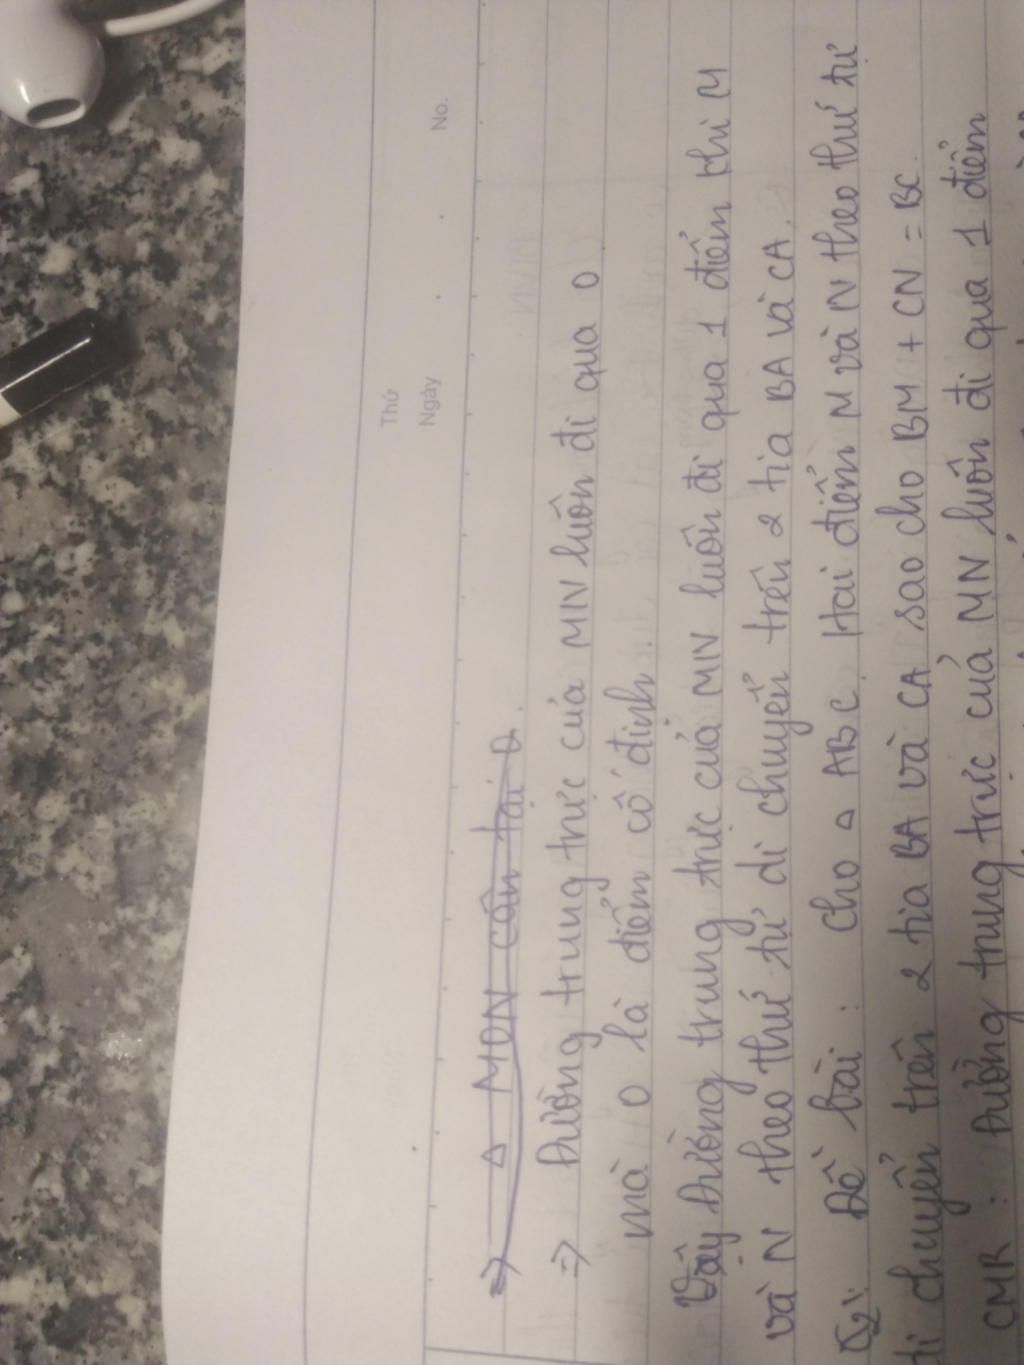 Thứ
Ngày
No.
=> Δ MON cân tại O.
=> Đường trung trực của MN luôn đi qua O
mà O là điểm cố định.
Vậy Đường trung trực của MN luôn đi qua 1 điểm khi M
và N theo thứ tự di chuyển trên 2 tia BA và CA.
Đề bài: Cho Δ ABC. Hai điểm M và N theo thứ tự
di chuyển trên 2 tia BA và CA sao cho BM + CN = BC.
CMR: Đường trung trực của MN luôn đi qua 1 điểm